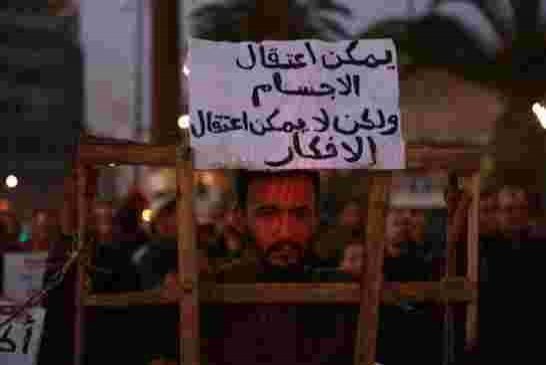 يمكن اعتقال
الاجسام
ولكن لا يمكن اعتقال
الافكار